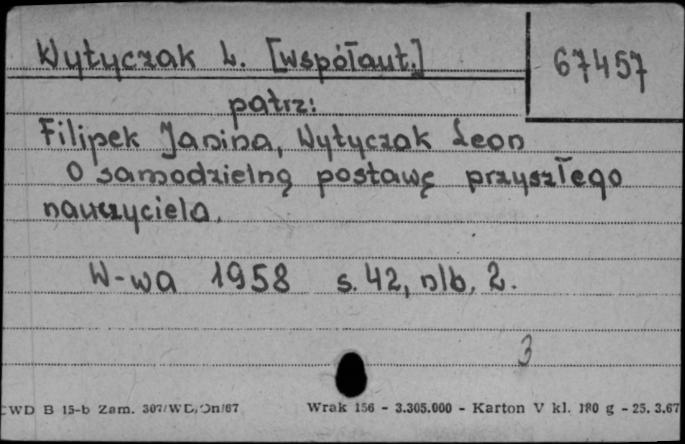 Wytyczak L. [współaut.]
67457
patrz:
Filipek Janina, Wytyczak Leon
O samodzielną postawę przyszłego
nauczyciela.
W-wa 1958 s. 42, nlb. 2.
3
CWD B 15-b Zam. 307/WD/Dn/67 Wrak 156 - 3.305.000 - Karton V kl. 180 g - 25. 3.67